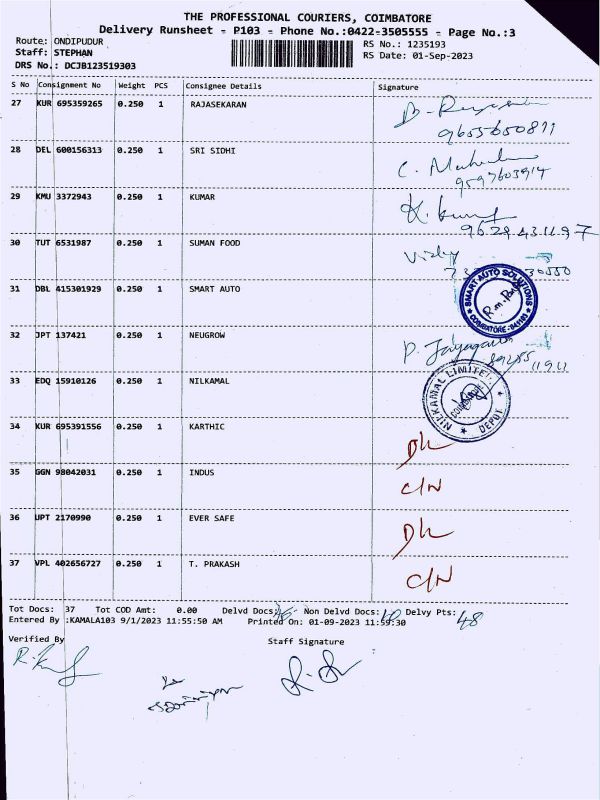 THE PROFESSIONAL COURIERS, COIMBATORE
Delivery Runsheet - P103 - Phone No.:0422-3505555 - Page No.:3
Route: ONDIPUDUR
RS No.: 1235193
Staff: STEPHAN
RS Date: 01-Sep-2023
DRS No.: DCJB123519303
S No Consignment No Weight PCS Consignee Details Signature
27 KUR 695359265 0.250 1 RAJASEKARAN
9655650811
28 DEL 600156313 0.250 1 SRI SIDHI
C.
9597603914
29 KMU 3372943 0.250 1 KUMAR K. Kumar
9629431197
30 TUT 6531987 0.250 1 SUMAN FOOD
31 DBL 415301929 0.250 1 SMART AUTO
SMART AUTO SOLUTIONS
COIMBATORE
32 JPT 137421 0.250 1 NEUGROW
33 EDQ 15910126 0.250 1 NILKAMAL
NILKAMAL LIMITED
COIMBATORE
DEPOT
34 KUR 695391556 0.250 1 KARTHIC DL
35 GGN 98042031 0.250 1 INDUS C/N
36 JPT 2170990 0.250 1 EVER SAFE DL
37 VPL 402656727 0.250 1 T. PRAKASH C/N
Tot Docs: 37 Tot COD Amt: 0.00 Delvd Docs: Non Delvd Docs: Delvy Pts: 48
Entered By :KAMALA103 9/1/2023 11:55:50 AM Printed On: 01-09-2023 11:55:30
Verified By Staff Signature